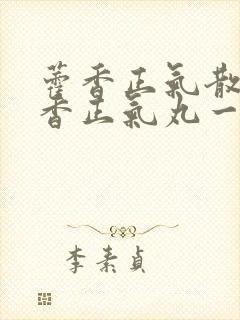 藿香正氣散
香正氣丸一
李素貞